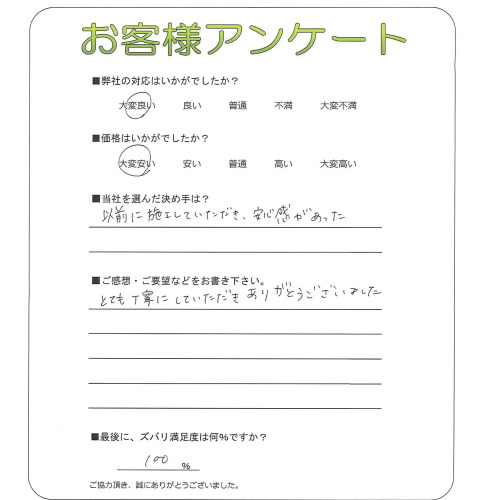 お客様アンケート
■弊社の対応はいかがでしたか？
大変良い 良い 普通 不満 大変不満
■価格はいかがでしたか？
大変安い 安い 普通 高い 大変高い
■当社を選んだ決め手は？
以前に施工していただき、安心感があった
■ご感想・ご要望などをお書き下さい。
とても丁寧にしていただきありがとうございました
■最後に、ズバリ満足度は何%ですか？
100 %
ご協力頂き、誠にありがとうございました。